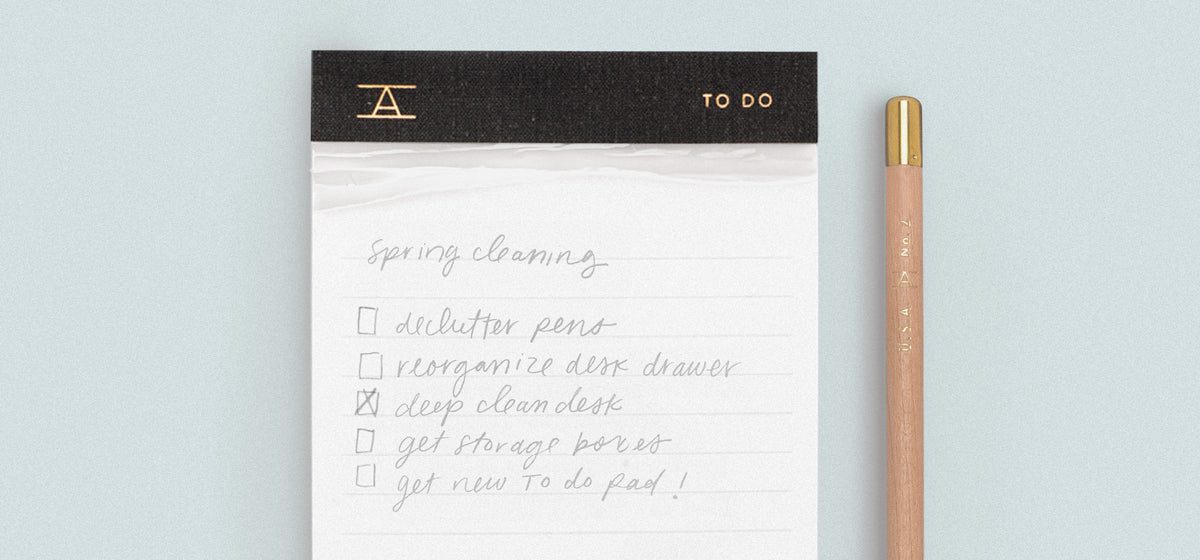 A
TO DO
spring cleaning
declutter pens
reorganize desk drawer
deep clean desk
get storage boxes
get new To do pad!
U.S.A. A No. 2